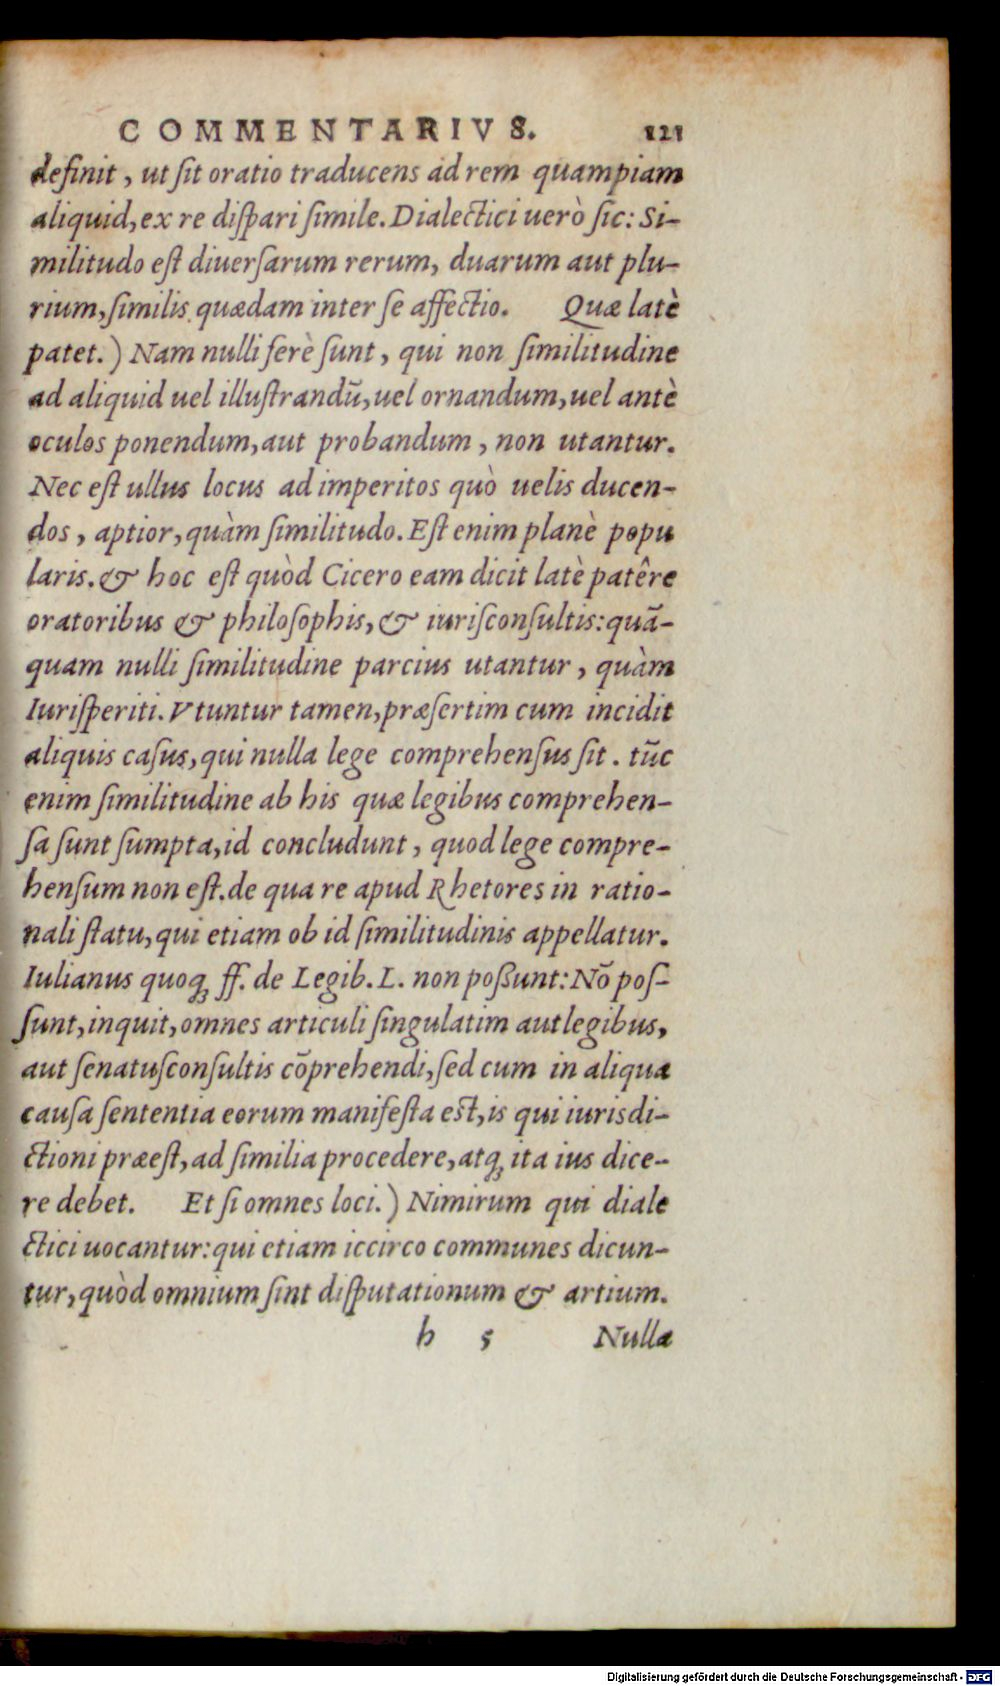 COMMENTARIVS. 121
definit, ut ſit oratio traducens ad rem quampiam
aliquid, ex re diſpari ſimile. Dialectici uerò ſic: Si-
militudo eſt diuerſarum rerum, duarum aut plu-
rium, ſimilis quædam inter ſe affectio. Quæ latè
patet.) Nam nulli ferè ſunt, qui non ſimilitudine
ad aliquid uel illuſtrandū, uel ornandum, uel antè
oculos ponendum, aut probandum, non utantur.
Nec eſt ullus locus ad imperitos quò uelis ducen-
dos, aptior, quàm ſimilitudo. Eſt enim planè popu
laris. & hoc eſt quòd Cicero eam dicit latè patêre
oratoribus & philoſophis, & iuriſconſultis: quã-
quam nulli ſimilitudine parcius utantur, quàm
Iuriſperiti. Vtuntur tamen, præſertim cum incidit
aliquis caſus, qui nulla lege comprehenſus ſit. tūc
enim ſimilitudine ab his quæ legibus comprehen-
ſa ſunt ſumpta, id concludunt, quod lege compre-
henſum non eſt. de qua re apud Rhetores in ratio-
nali ſtatu, qui etiam ob id ſimilitudinis appellatur.
Iulianus quoq; ff. de Legib. L. non poßunt: Nō poſ-
ſunt, inquit, omnes articuli ſingulatim aut legibus,
aut ſenatuſconſultis cōprehendi, ſed cum in aliqua
cauſa ſententia eorum manifeſta eſt, is qui iurisdi-
ctioni præeſt, ad ſimilia procedere, atq; ita ius dice-
re debet. Et ſi omnes loci.) Nimirum qui diale
ctici uocantur: qui etiam iccirco communes dicun-
tur, quòd omnium ſint diſputationum & artium.
h 5 Nulla
Digitalisierung gefördert durch die Deutsche Forschungsgemeinschaft - DFG